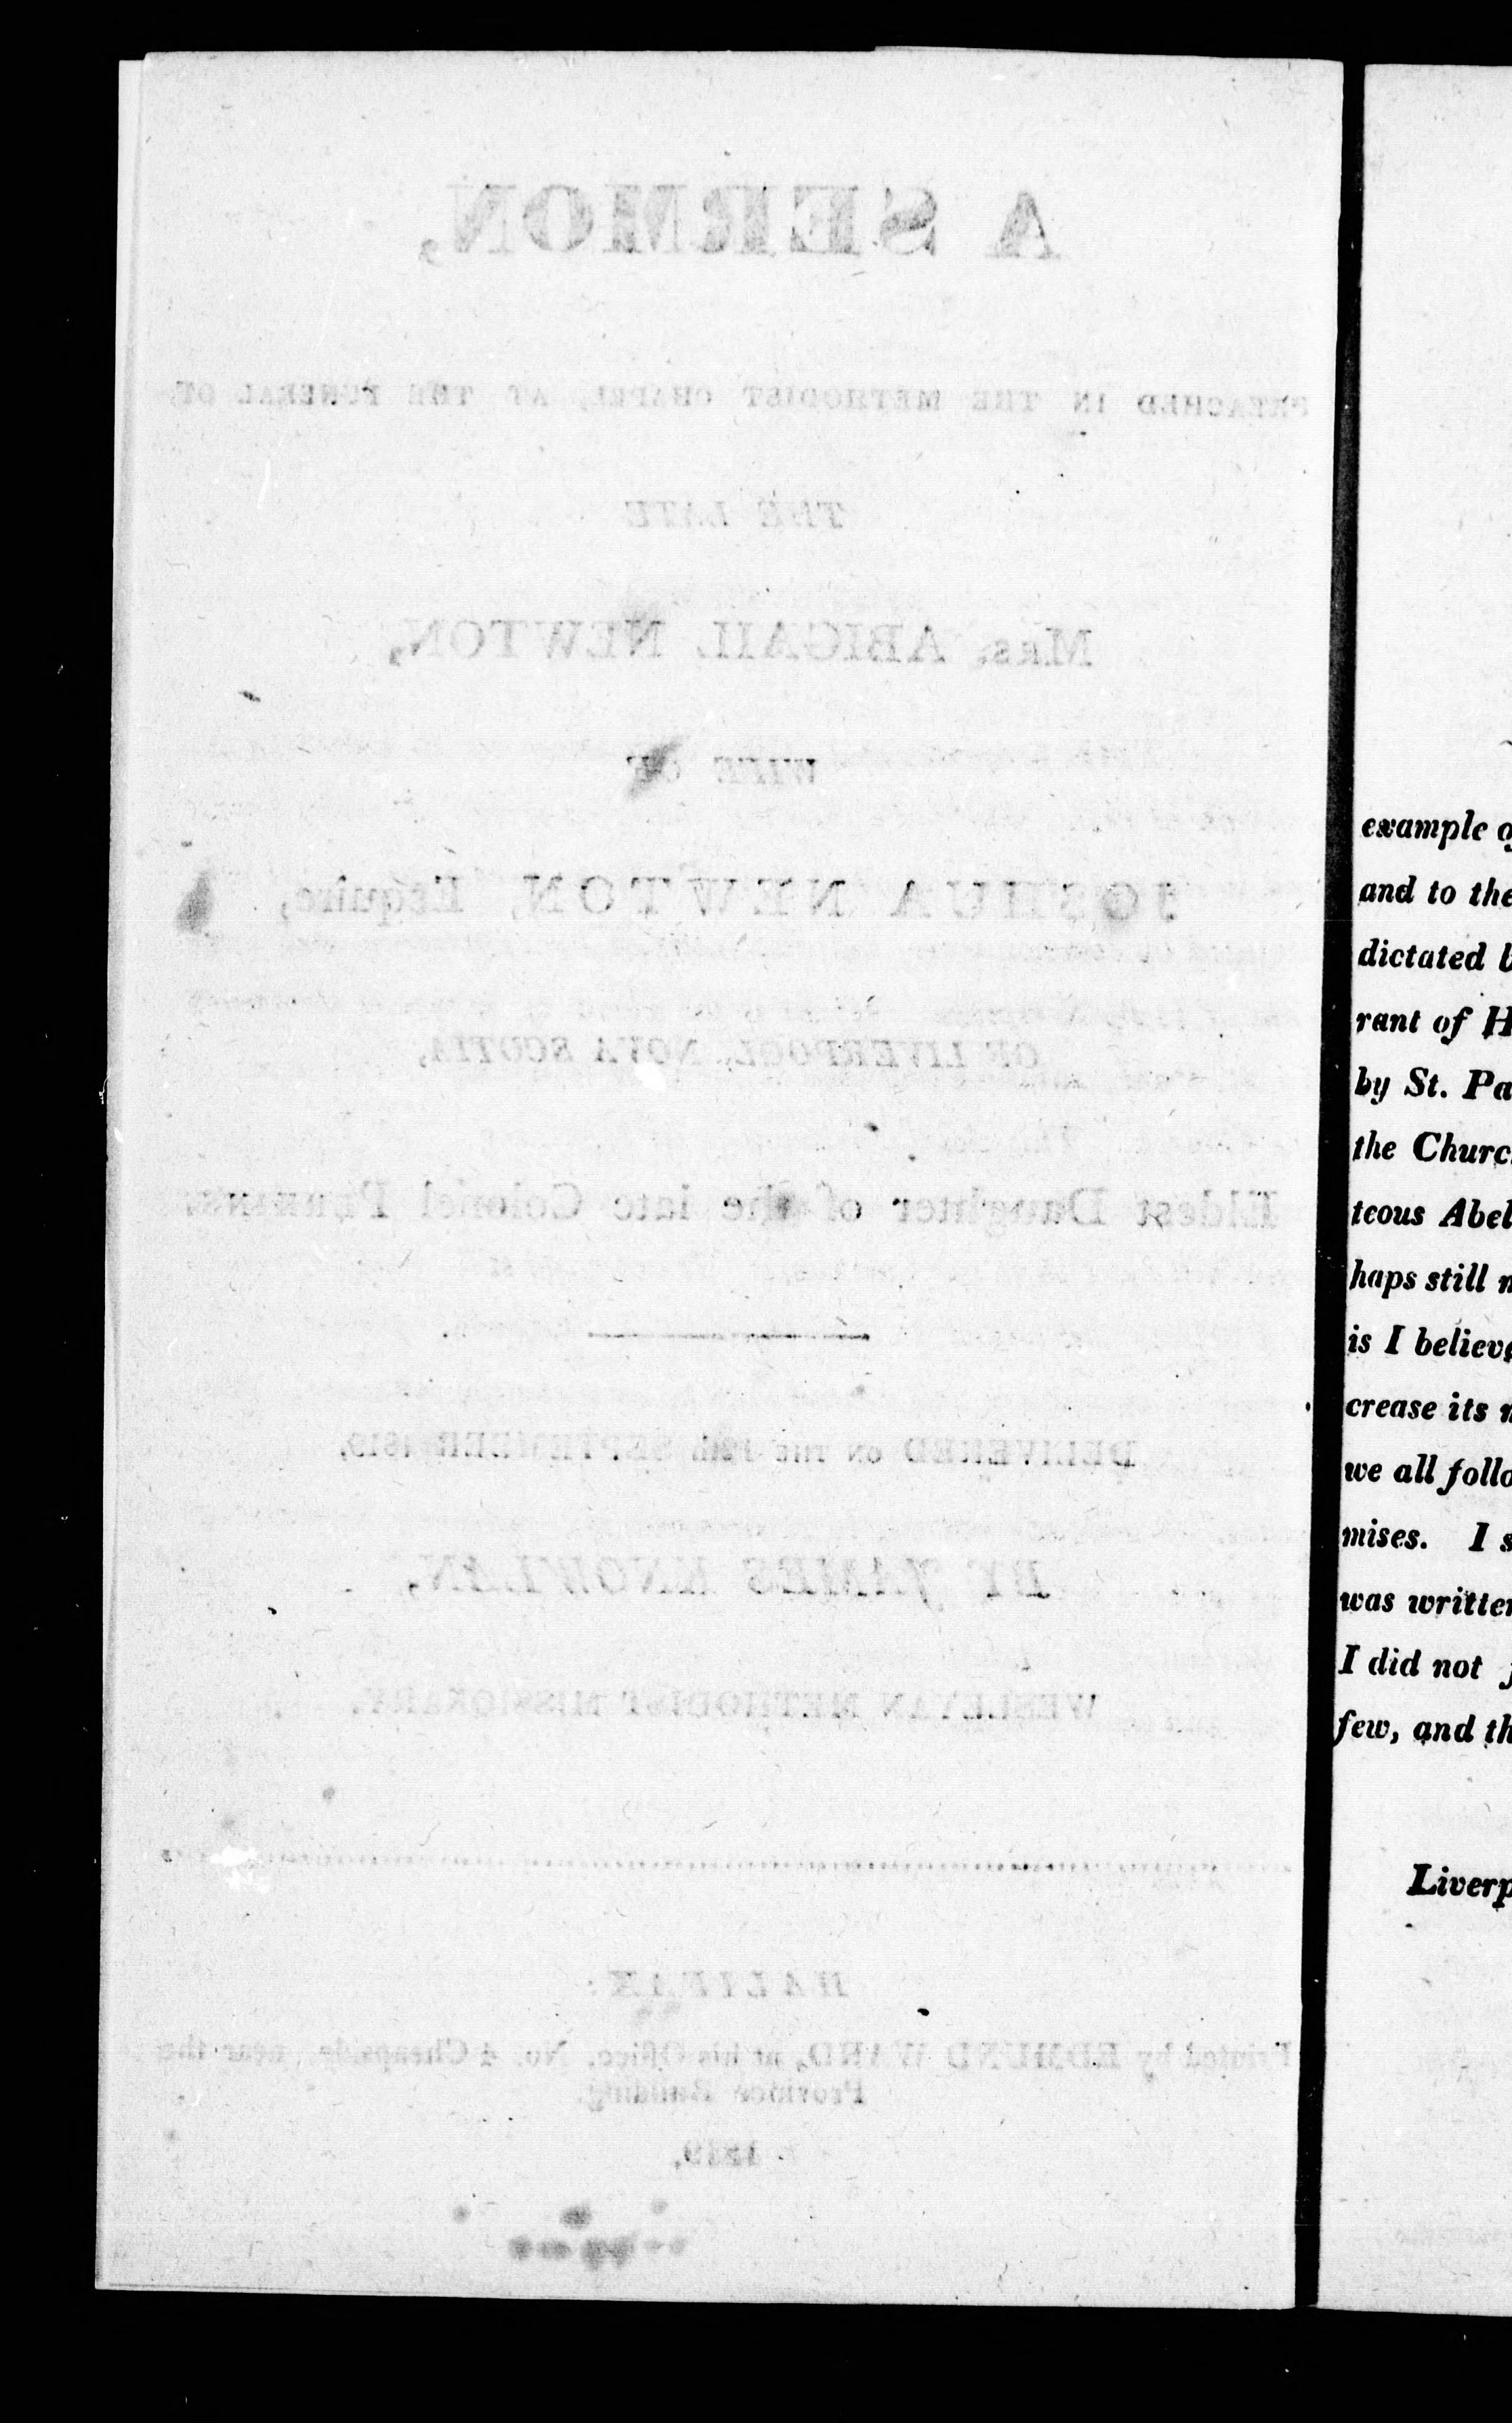 A SERMON,
PREACHED IN THE METHODIST CHAPEL, AT THE FUNERAL OF
THE LATE
Mrs. ABIGAIL NEWTON,
WIFE OF
JOSHUA NEWTON, Esquire,
OF LIVERPOOL, NOVA SCOTIA,
Eldest Daughter of the late Colonel PERKINS:
DELIVERED ON THE 12th SEPTEMBER 1819,
BY JAMES KNOWLAN,
WESLEYAN METHODIST MISSIONARY.
HALIFAX:
Printed by EDMUND WARD, at his Office, No. 4 Cheapside, near the
Province Building.
1819.
example
and to the
dictated
rant of
by St. Pa
the Churc
teous Abel
haps still
is I believ
crease its
we all follo
mises. I s
was writte
I did not
few, and th
Liverp